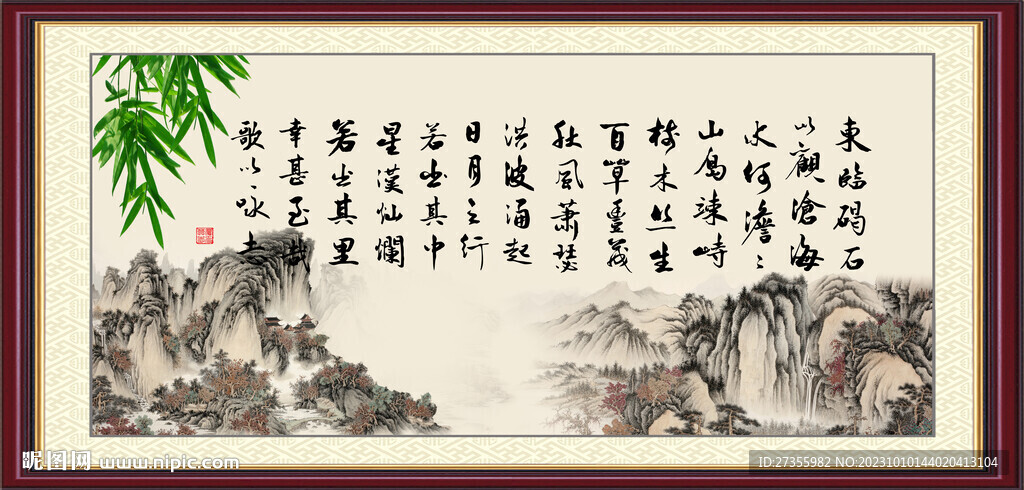 東臨碣石
以觀滄海
水何澹〻
山島竦峙
樹木丛生
百草豐茂
秋風蕭瑟
洪波涌起
日月之行
若出其中
星漢灿爛
若出其里
幸甚至哉
歌以咏志
昵图网 www.nipic.com
ID:27355982 NO:20231010144020413104